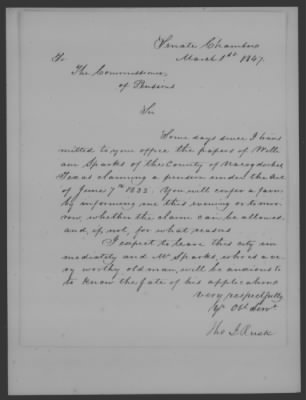 Senate Chamber
March 1st 1847.
To
The Commissioner,
of Pensions
Sir
Some days since I trans
mitted to your office the papers of Willi
am Sparks of the County of Nacogdoches
Texas claiming a pension under the Act
of June 7th 1832. You will confer a favor
by informing me this evening or tomor
row, whether the claim can be allowed
and, if not, for what reasons
I expect to leave this city im
mediately and Mr Sparks, who is a ve
ry worthy old man, will be anxious to
to know the fate of his application
very respectfully
Yr Obt Servt
Tho J Rusk